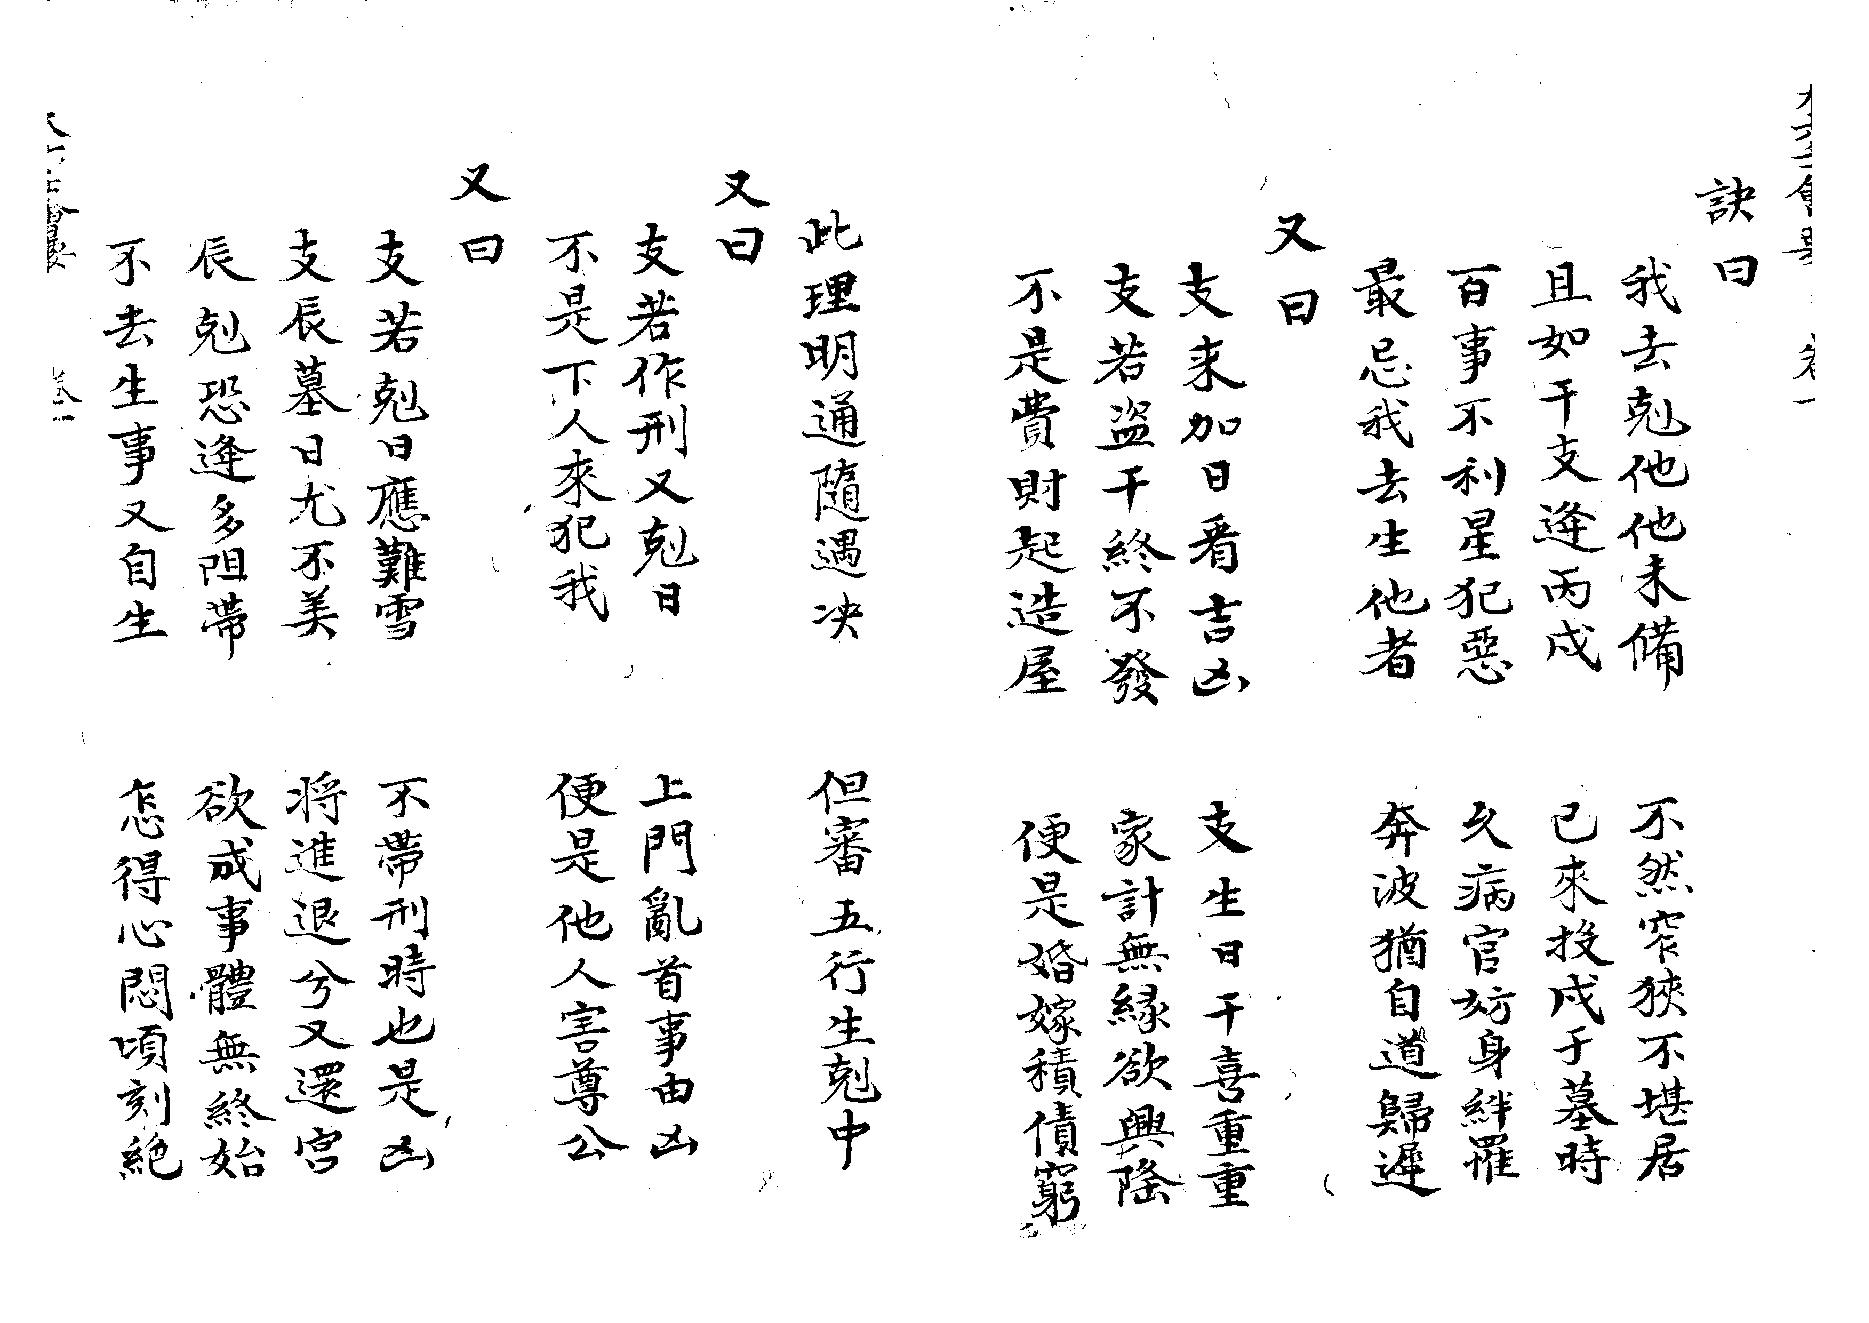 訣曰
我去剋他他未備　不然窄狹不堪居
且如干支逢丙戌　已來投戌于墓時
百事不利星犯惡　久病官妨身絆羅
最忌我去生他者　奔波猶自道歸遲
又曰
支来加日看吉凶　支生日干喜重重
支若盗干終不發　家計無縁欲興隆
不是費財起造屋　便是婚嫁積債窮
此理明通隨遇决　但審五行生剋中
又曰
支若作刑又剋日　上門亂首事由凶
不是下人來犯我　便是他人害尊公
又曰
支若剋日應難雪　不帶刑時也是凶
支辰墓日尤不美　将進退兮又還宫
辰剋恐逢多阻滯　欲成事體無終始
不去生事又自生　怎得心悶頃刻絶